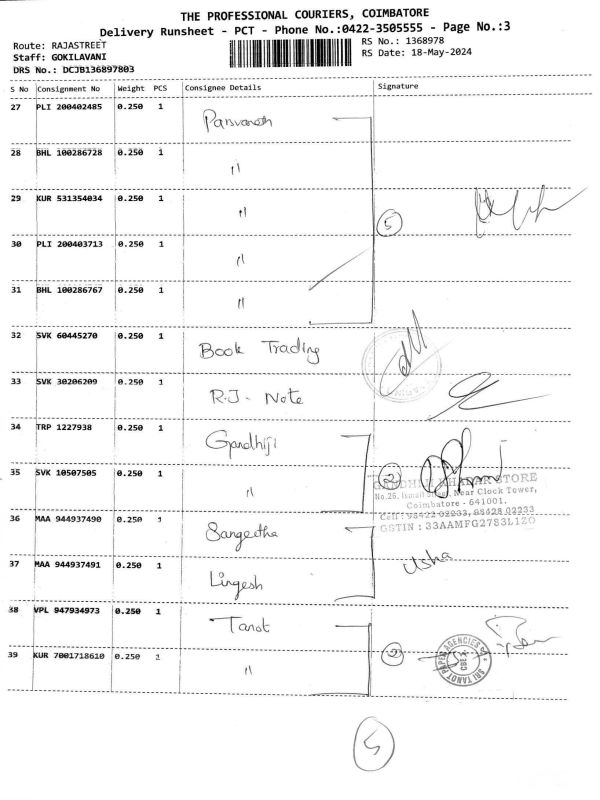 THE PROFESSIONAL COURIERS, COIMBATORE
Delivery Runsheet - PCT - Phone No.:0422-3505555 - Page No.:3
Route: RAJASTREET
RS No.: 1368978
Staff: GOKILAVANI
RS Date: 18-May-2024
DRS No.: DCJB136897803
S No Consignment No Weight PCS Consignee Details Signature
27 PLI 200402485 0.250 1
28 BHL 100286728 0.250 1 "
29 KUR 531354034 0.250 1 " 5
30 PLI 200403713 0.250 1 "
31 BHL 100286767 0.250 1 "
32 SVK 60445270 0.250 1 Book Trading
33 SVK 30206209 0.250 1 R.J- Note
34 TRP 1227938 0.250 1 Gandhiji
35 SVK 10507505 0.250 1 " 2
STORE
No.26, Ismail Street, Near Clock Tower,
Coimbatore - 641001.
GSTIN : 33AAMFG2783L1ZO
36 MAA 944937490 0.250 1 Sangeetha
37 MAA 944937491 0.250 1 Lingesh Usha
38 VPL 947934973 0.250 1 Tanot
39 KUR 7001718610 0.250 1 " 2
SRI TANOT PAPER AGENCIES
CBE
5